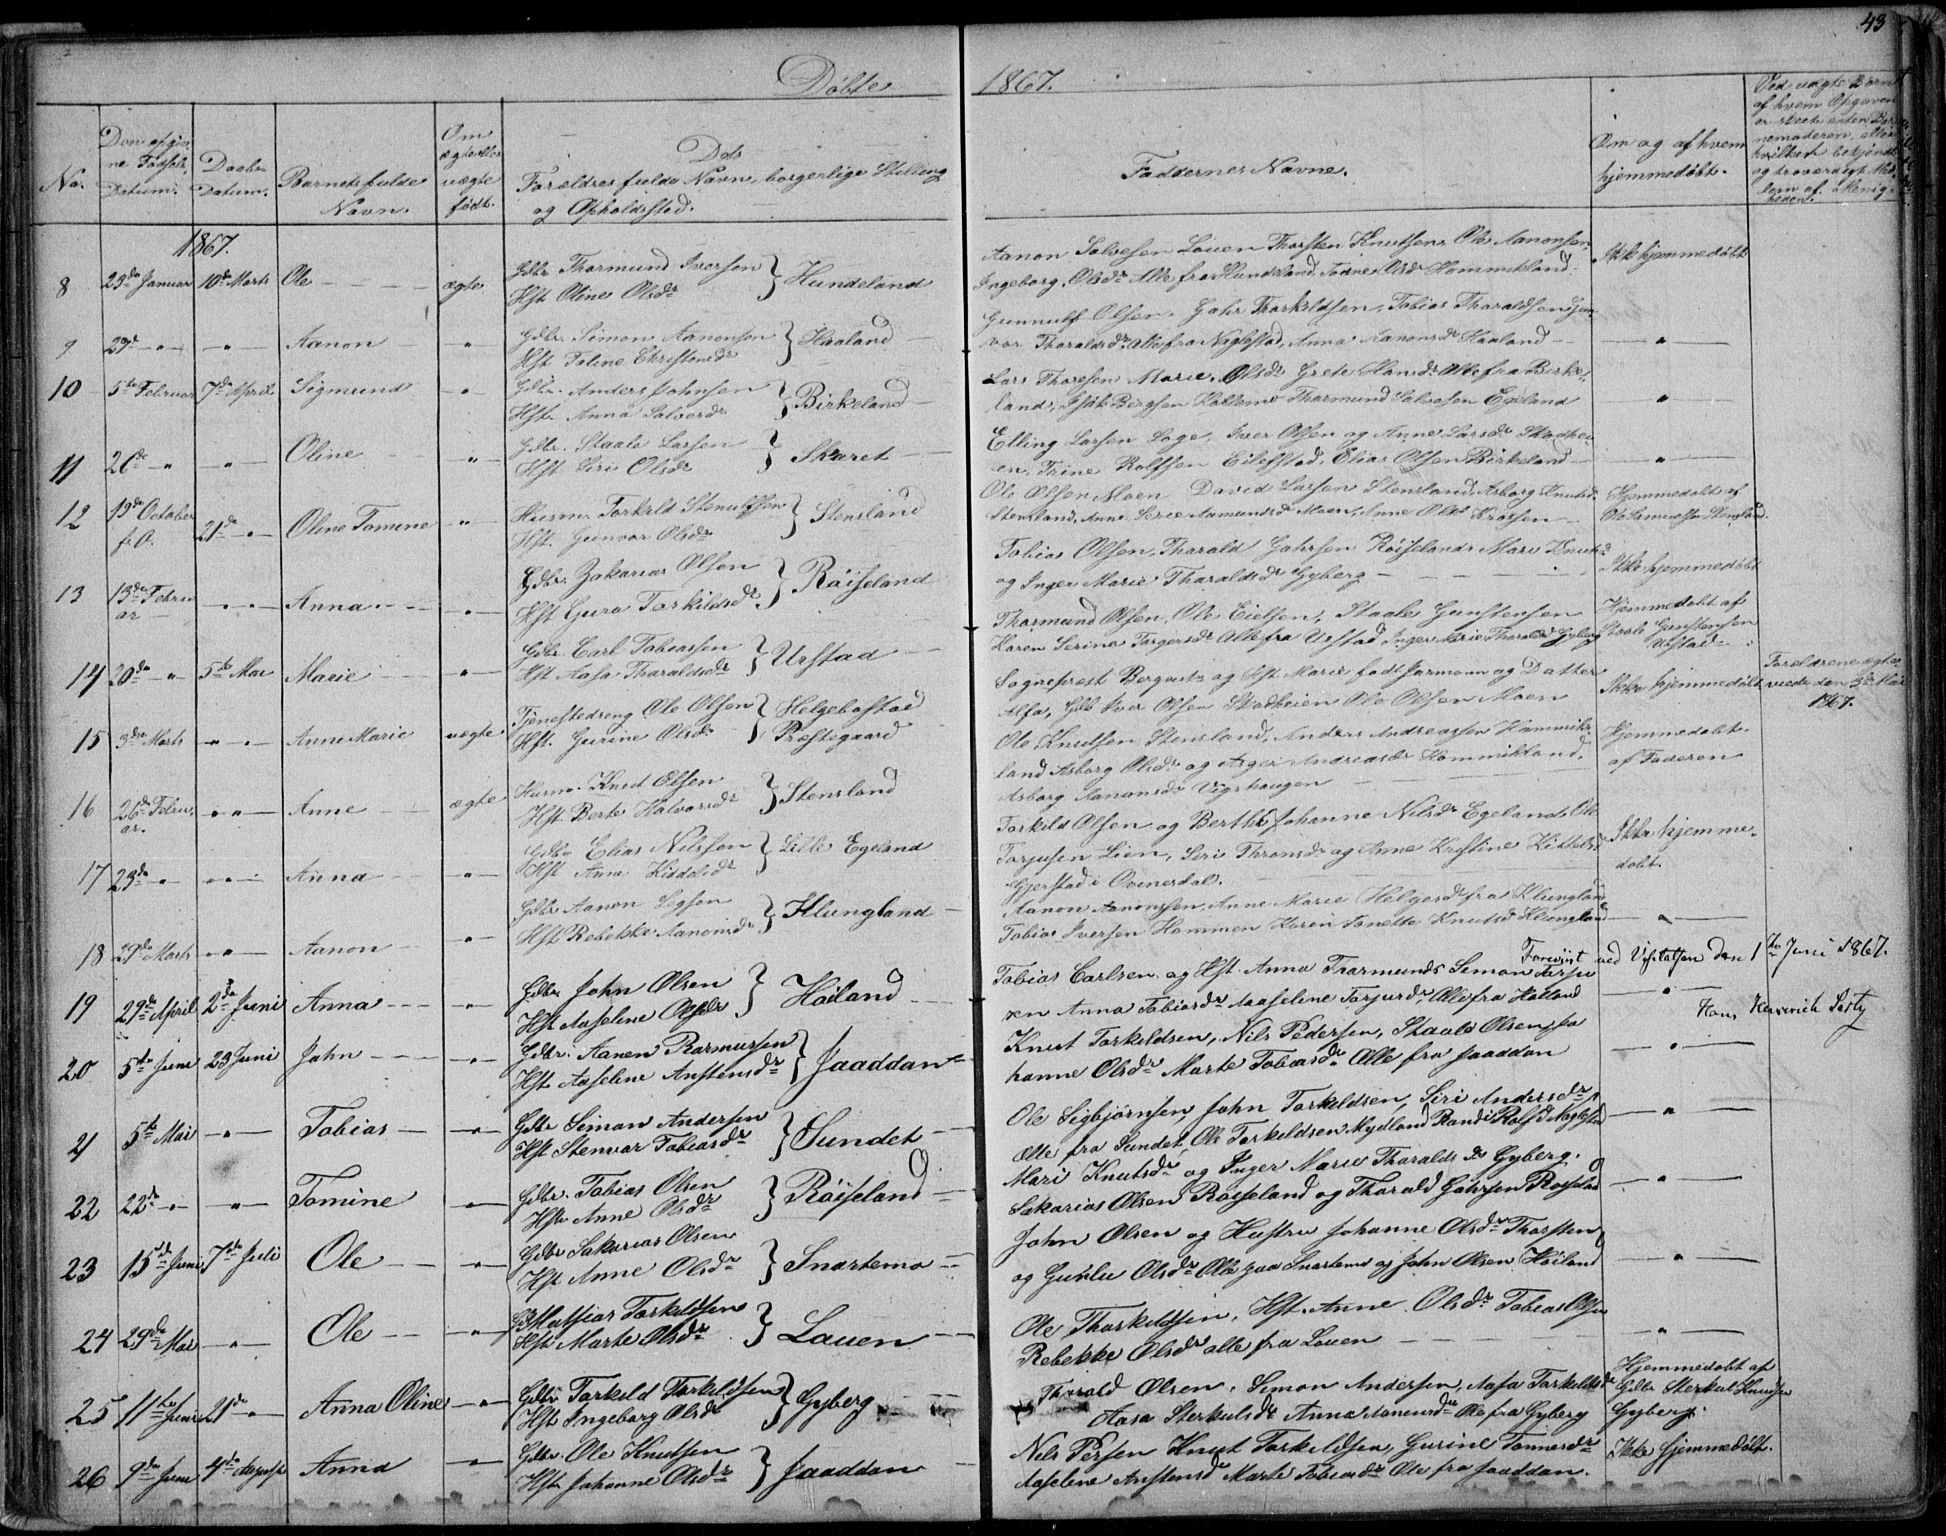 43
Döbte 1867.
No.
Den opgiv-
ne Födsels
Datum.
Daabs
Datum.
Barnets fulde
Navn.
Om
ægte eller
uægte
födt.
Dets
Forældres fulde Navn, borgerlige Stilling
og Opholdsted.
Faddernes Navne.
Om og af hvem
hjemmedöbt.
1867.
8 23de Januar 10de Marts Ole ægte Gdbr Thormund Iversen Hst Oline Olsdr } Hundeland
Aanon Salvesen Lauen Thorsten Knutsen, Ole Aanonsen
Ingeborg Olsdr Alle fra Hundeland Todne Olsdr Hommikland.
Ikke hjemmedöbt
9 29de " " Aanon " Gdbr. Simon Aanonsen Hst Toline Christensdr } Haaland
Gunnulf Olsen. Gahr Thorkildsen, Tobias Tharaldsen Gun-
vor Tharaldsdr. Alle fra Naglestad, Anna Aanonsdr Haaland
"
10 5te Februar 7de April Sigmund " Gdbr. Anders Johnsen Hst. Anna Salvesdr } Birkeland
Lars Thoresen Marie Olsdr Grete Hansdr Alle fra Birke-
land, Isak Bergsen Thormund Salvesen Egeland
"
11 26de " " Oline " Gdbr. Staale Larsen Hst Siri Olsdr } Skaret
Elling Larsen Soge, Iver Olsen og Anne Larsdr Skadhei-
en, Trine Rolfsen Eilefstad, Elias Olsen Birkeland
"
12 19de October f.A. 21de " Oline Tomine " Husm. Torkild Stenulfsen Hst. Gunvor Olsdr } Stensland
Ole Olsen Moen David Larsen Stensland, Asborg Knutsdr
Stensland, Anne Serie Aamundsdr Moen, Anne Olsdr
Hjemmedöbt af
Ole Samuelsen Stensland.
13 13de Febru-
ar " Anna " Gdbr. Zakarias Olsen Hst Gura Torkildsdr } Röiseland
Tobias Olsen, Tharald Gahrsen Röiseland Mari Knutsdr
og Inger Marie Tharaldsdr Gyberg
Ikke hjemmedöbt
14 20de " 5te Mai Marie " Gdbr. Carl Tobiassen Hst Aasa Tharaldsdr } Urstad
Thormund Olsen, Ole Eielsen, Staale Gunstensen
Karen Serine Torgersdr Alle fra Urstad Inger Marie Tharaldsdr Gyberg
Hjemmedöbt af
Staale Gunstensen
Urstad
15 3de Marts " Anne Marie uægte Tjenestedreng Ole Olsen Helgebostad Hst. Gurine Olsdr Præstegaard
Sognepræst og Hst Marie födt og Datter
Alfa, Gdb Iver Olsen Skadheien Ole Olsen Moen
Ikke hjemmedöbt
Forældrene ægte-
viede den 3de Mai
1867.
16 26de Febru-
ar. " Anne ægte Husm. Knud Olsen Hst Berte Halvorsdr } Stensland
Ole Knutsen Stensland, Anders Andreassen Hammik-
land Asborg Olsdr og Asger Andreasdr Hommikland,
Asborg Aanonsdr Vigshaugen
Hjemmedöbt
af Faderen
17 23de " " Anna " Gdbr Elias Nilssen Hst Anna Kiddelsdr } Lille Egeland
Torkild Olsen og Berthe Johanne Nilsdr Egeland, Ole
Torjusen Lien, Siri Thronsdr og Anne Kristine Kittelsdr
Gjerstad i Qvinesdal.
Ikke hjemme-
döbt.
18 29de Marts " Aanon " Gdbr Aanon Hst Rebekke Aanonsdr } Klungland
Aanon Aanonsen, Anne Marie Helgesdr fra Klungland
Tobias Iversen Hommen Karen Tonette Knutsdr Klungland
"
Foreviist ved Visitatsen den 1ste Juni 1867.
19 29de April 2de Juni Anna " Gdbr John Olsen Hst Aaseline Olsdr } Höiland
Tobias Carlsen og Hst. Anna Tharmunds Simon
sen Anna Tobiasdr Aaseline Torjusdr Alle fra Höiland
"
20 5te Juni 23 Juni John " Gdbr. Aanen Rasmussen Hst Aaseline Anstensdr } Jaaddan
Knut Torkildsen, Nils Pedersen, Staale Olsen, Jo-
hanne Olsdr Marte Tobiasdr Alle fra Jaaddan
"
21 5te Mai " Tobias " Gdbr Simon Andersen Hst Stenvor Tobiasdr } Sundet
Ole Sigbjörnsen, John Torkildsen, Siri Andersdr
Alle fra Sundet, Ole Torkildsen Mydland Randi Rolfsd Naglestad
"
22 22de " " Tomine " Gdbr. Tobias Olsen Hst Anne Olsdr } Röiseland
Mari Knutsdr og Inger Marie Tharaldsdr Gyberg.
Sakarias Olsen Röiseland og Tharald Gahrsen Röiseland
"
23 15de Juni 7de Juli Ole " Gdbr Sakarias Olsen Hst. Anne Olsdr } Snartemo
John Olsen og Hustru Johanne Olsdr Thorsten
og Gunlu Olsdr Alle paa Snartemo og John Olsen Höiland
"
24 29de Mai " Ole " Gdb Mathias Torkildsen Hst Marte Olsdr } Lauen
Ole Thorkildsen, Hst. Anne Olsdr Tobias Olsen
Rebekke Olsdr alle fra Lauen
"
25 11te Juni 21de " Anna Oline " Gdbr Torkild Torkildsen Hst Ingeborg Olsdr } Gyberg
Tharald Olsen, Simon Andersen, Aasa Torkildsdr
Aasa Sterkulsdr Anna Aanensdr Alle fra Gyberg
Hjemmedöbt af
Gdbr Sterkul Knudsen
Gyberg.
26 9de Juni 4de August Anna " Gdbr. Ole Knutsen Hst Johanne Olsdr } Jaaddan
Nils Persen Knut Torkildsen, Gurine Tönnesdr
Aaseline Anstensdr Marte Tobiasdr Alle fra Jaaddan.
Ikke hjemmedöbt.